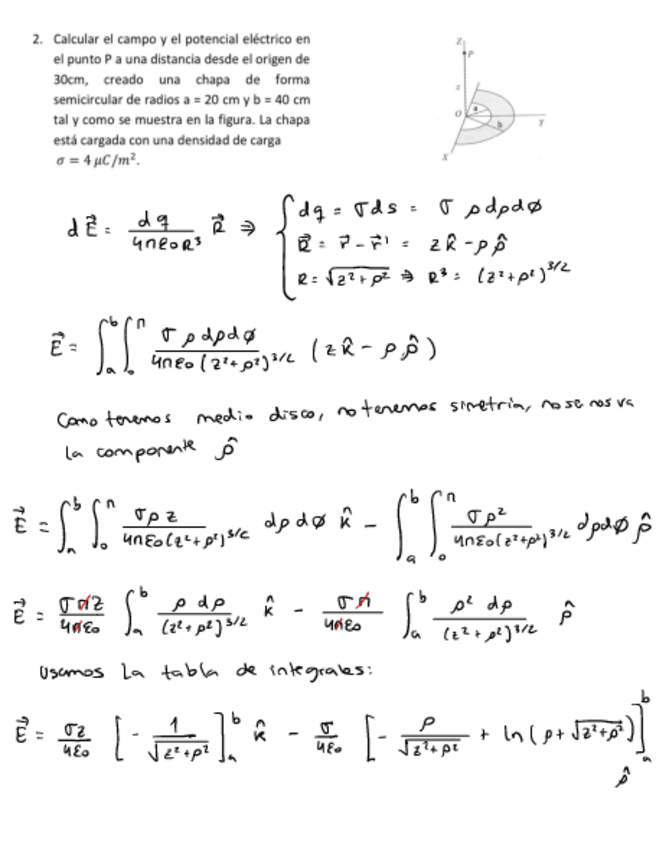 2. Calcular el campo y el potencial eléctrico en
el punto P a una distancia desde el origen de
30cm, creado una chapa de forma
semicircular de radios a = 20 cm y b = 40 cm
tal y como se muestra en la figura. La chapa
está cargada con una densidad de carga
σ = 4 μC/m².
Z
P
z
O
a
b
Y
X
dE⃗ = dq / 4πε₀R³ R⃗ ⇒ { dq = σds = σ ρdρdφ
R⃗ = r⃗ - r⃗' = z k̂ - ρ ρ̂
R = √(z² + ρ²) ⇒ R³ = (z² + ρ²)^3/2
E⃗ = ∫_a^b ∫_0^π σ ρ dρdφ / 4πε₀(z² + ρ²)^3/2 (z k̂ - ρ ρ̂)
Como tenemos medio disco, no tenemos simetría, no se nos va
la componente ρ̂
E⃗ = ∫_a^b ∫_0^π σρz / 4πε₀(z² + ρ²)^3/2 dρdφ k̂ - ∫_a^b ∫_0^π σρ² / 4πε₀(z² + ρ²)^3/2 dρdφ ρ̂
E⃗ = σπz / 4πε₀ ∫_a^b ρ dρ / (z² + ρ²)^3/2 k̂ - σπ / 4πε₀ ∫_a^b ρ² dρ / (z² + ρ²)^3/2 ρ̂
Usamos la tabla de integrales:
E⃗ = σz / 4ε₀ [ - 1 / √(z² + ρ²) ]_a^b k̂ - σ / 4ε₀ [ - ρ / √(z² + ρ²) + ln(ρ + √(z² + ρ²)) ]_a^b ρ̂